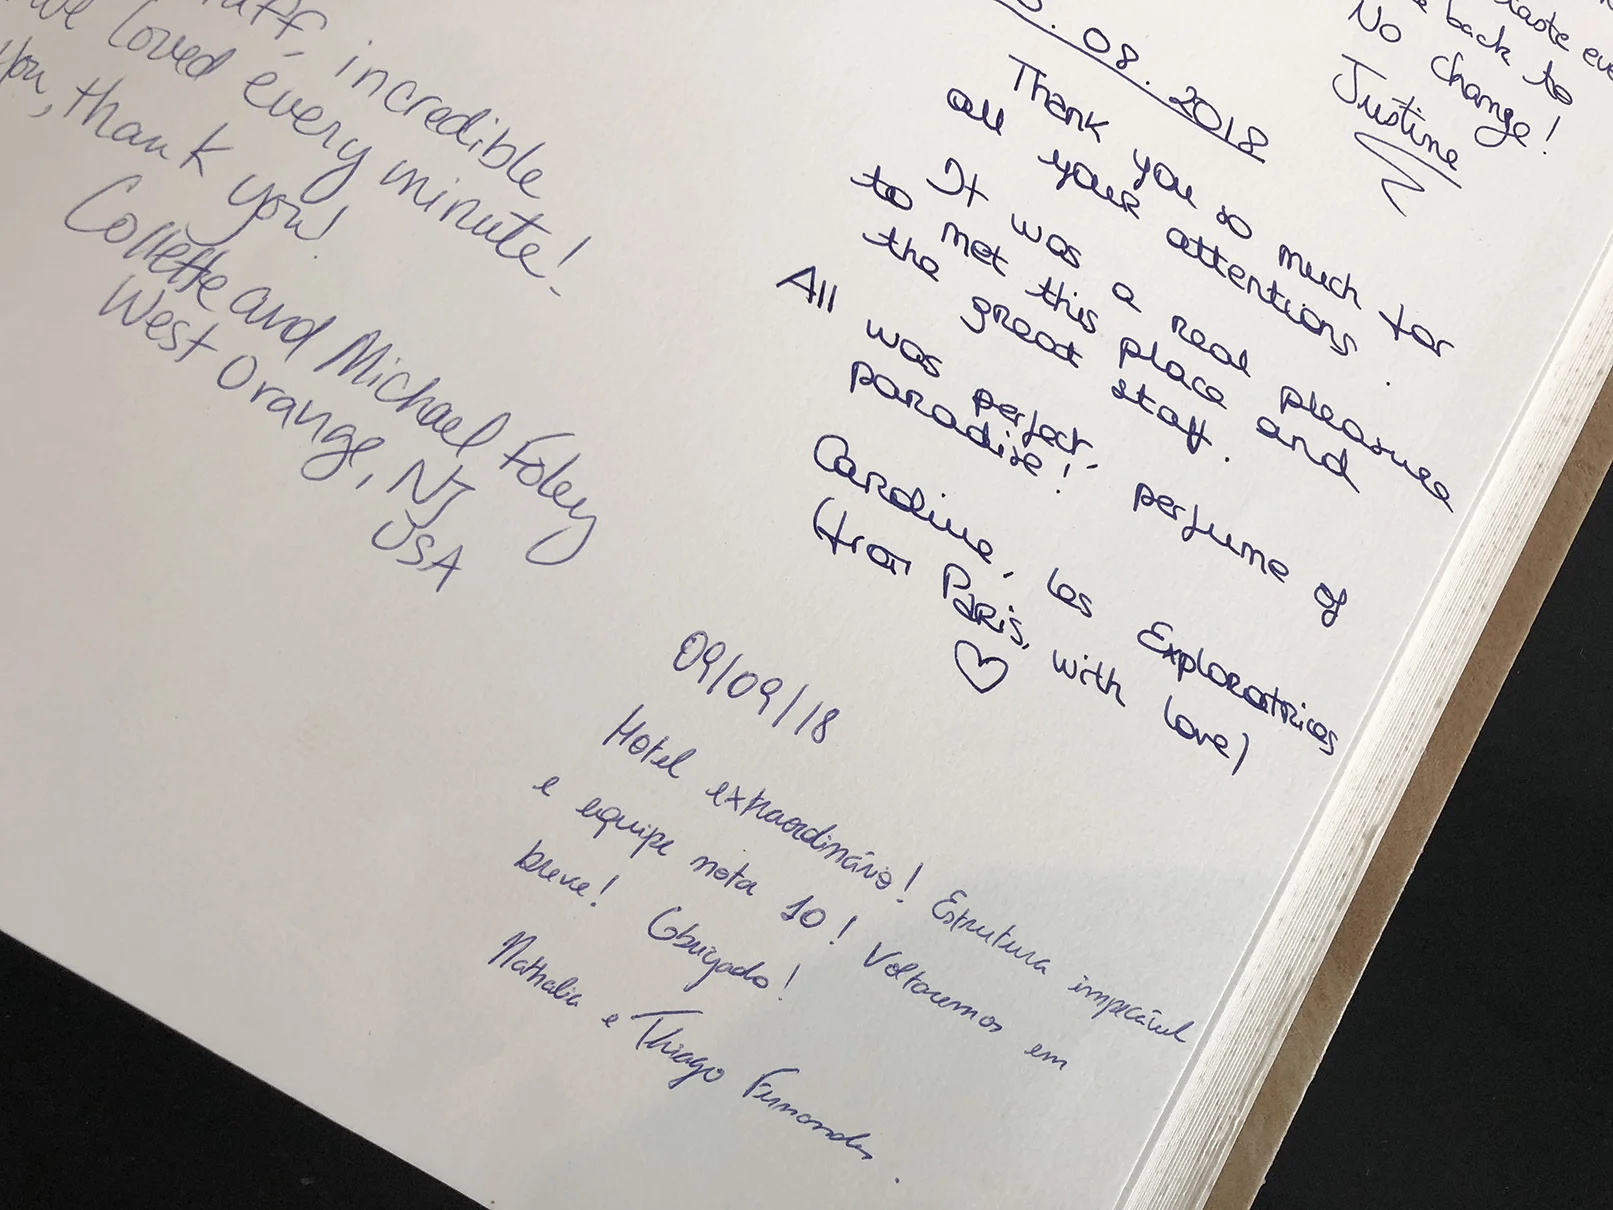 incredible
we loved every minute!
you, thank you!
Collette and Michael Foley
West Orange, NJ
USA
back to
No change!
Justine
.08.2018
Thank you so much for
all your attentions.
It was a real pleasure
to met this place and
the great staff.
All was perfect, perfume of
paradise!
Caroline, Les Exploratrices
(from Paris, with love)
09/09/18
Hotel extraordinário! Estrutura impecável
e equipe nota 10! Voltaremos em
breve! Obrigado!
Nathalia e Thiago Fernandes.